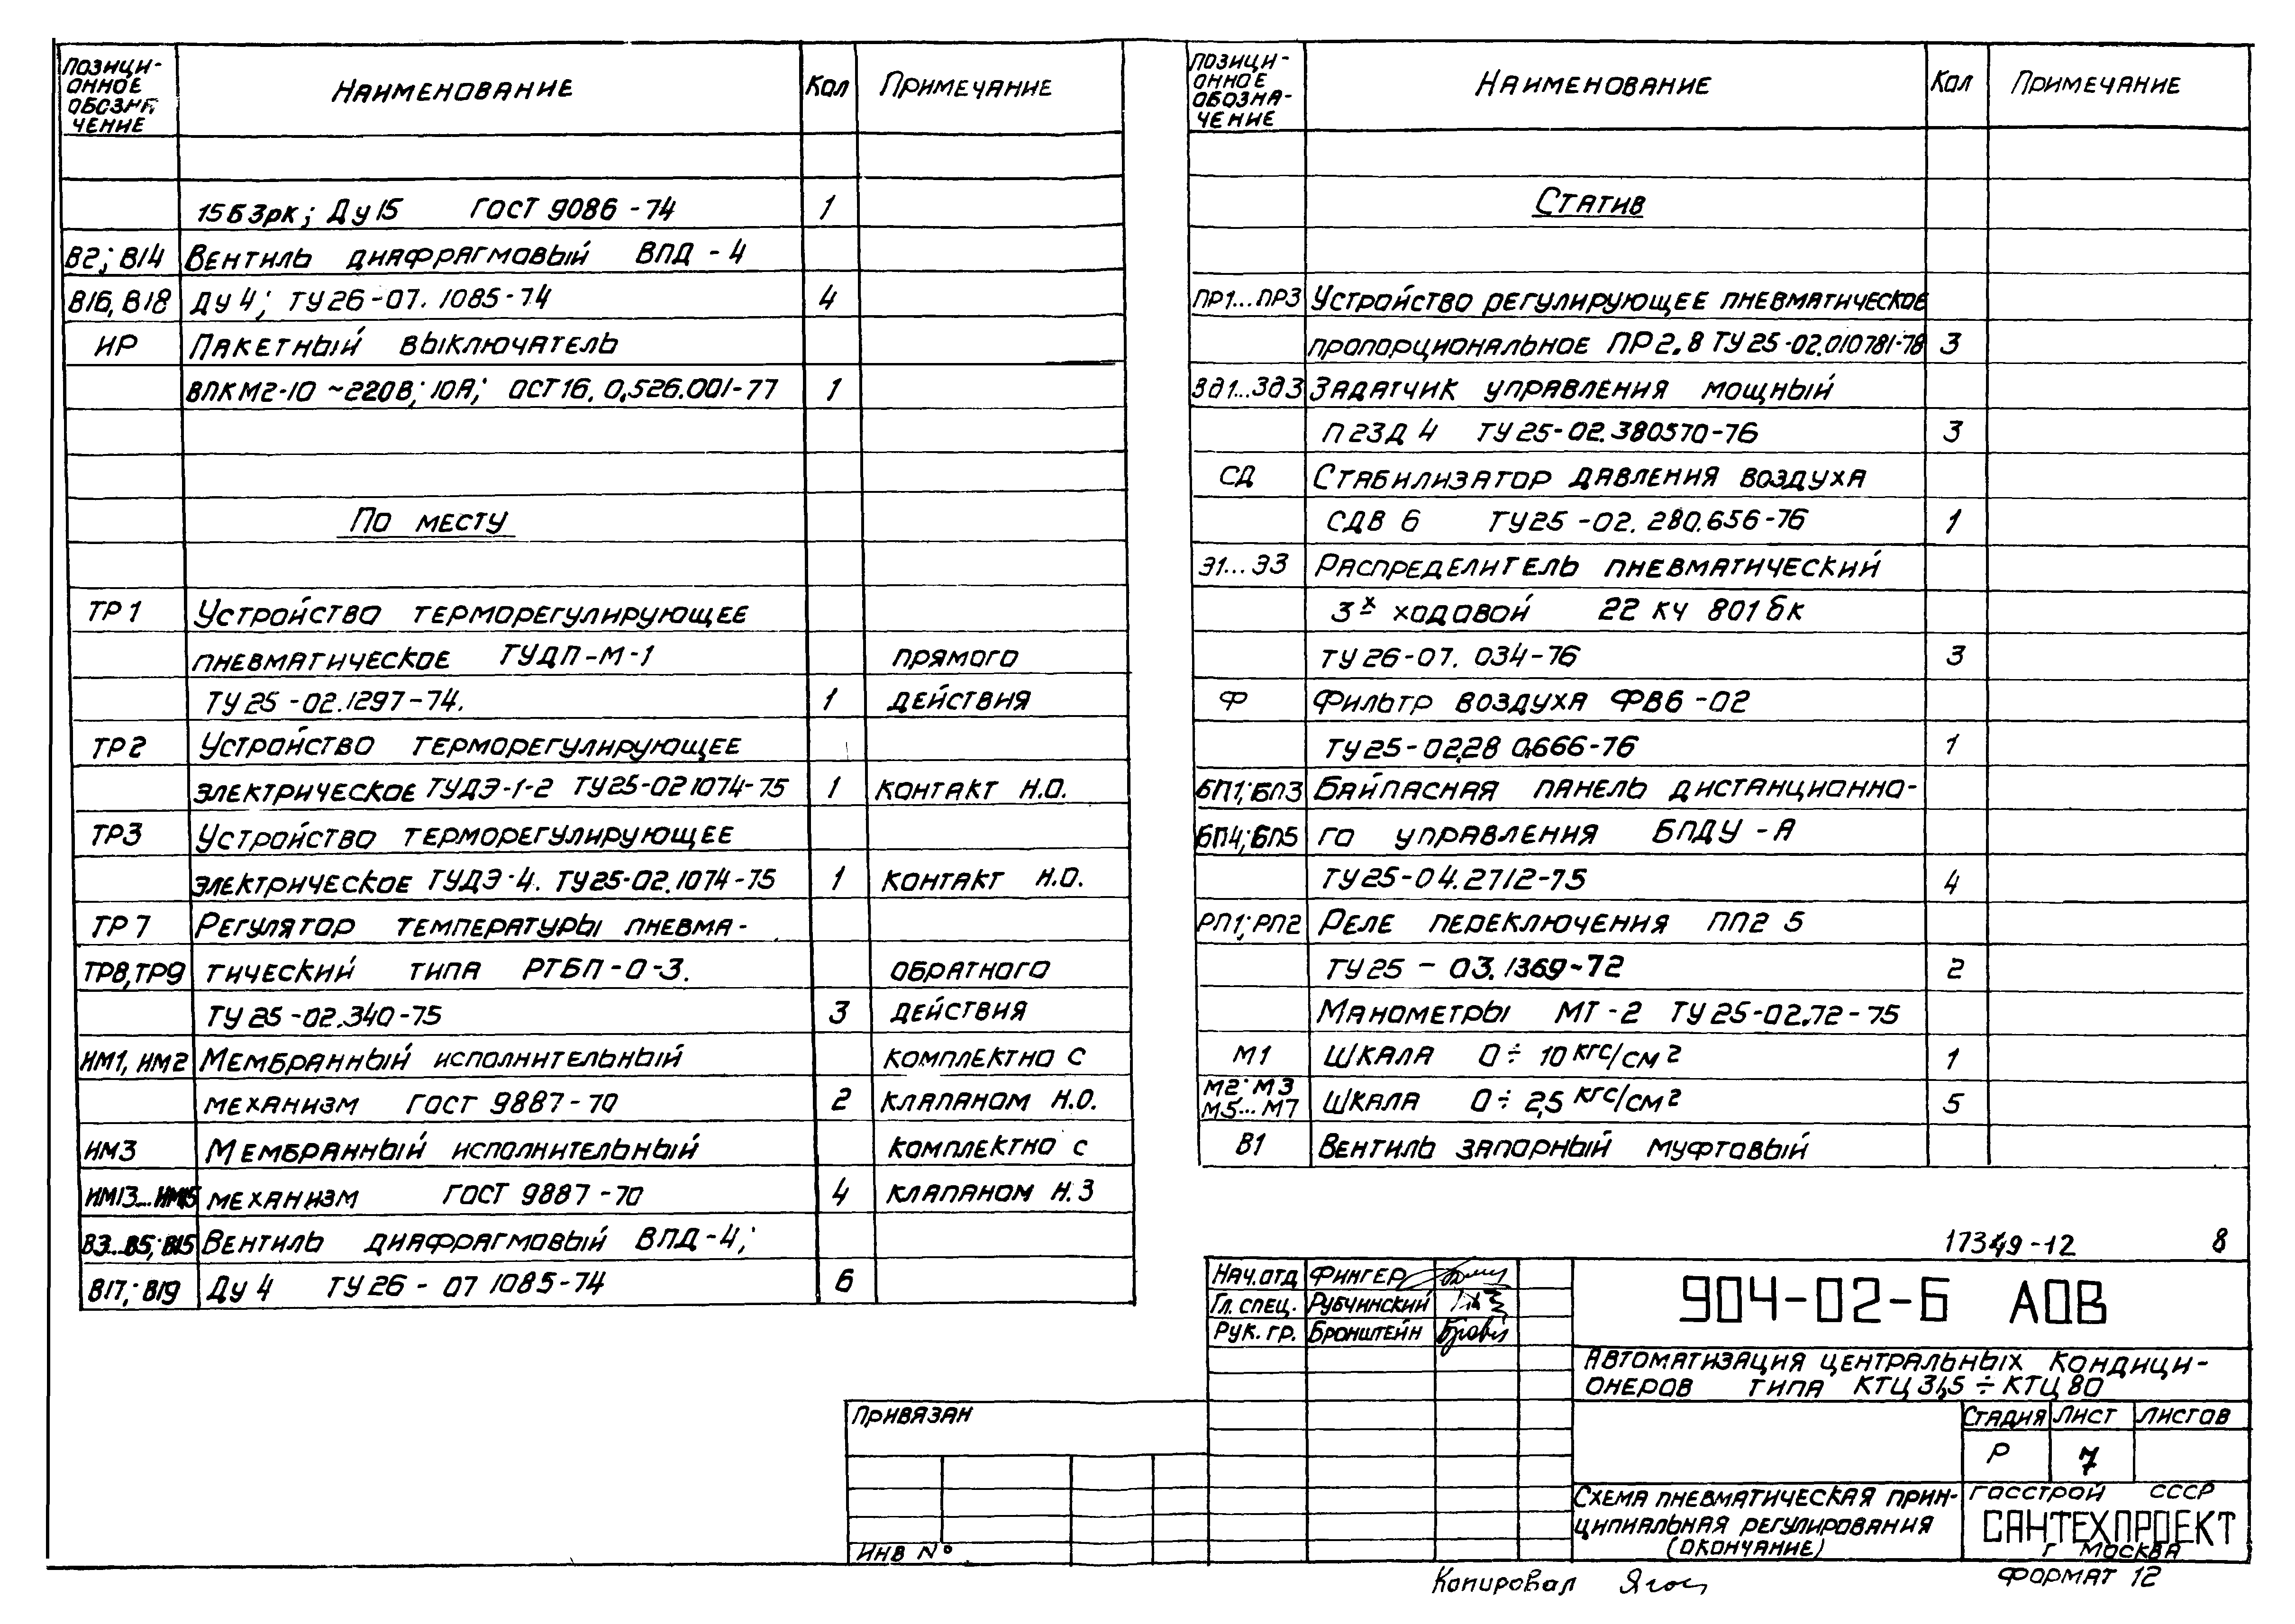 Позици- Наименование Кол Примечание
онное
обозна
чение
15Б3рк; Ду 15 ГОСТ 9086-74 1
В2; В14 Вентиль диафрагмовый ВПД-4
В16, В18 Ду 4; ТУ 26-07. 1085-74 4
ИР Пакетный выключатель
ВПКМ2-10 ~220В; 10А; ОСТ 16. 0,526.001-77 1
По месту
ТР1 Устройство терморегулирующее
пневматическое ТУДП-М-1 прямого
ТУ 25-02.1297-74. 1 действия
ТР2 Устройство терморегулирующее
электрическое ТУДЭ-1-2 ТУ25-021074-75 1 контакт Н.О.
ТР3 Устройство терморегулирующее
электрическое ТУДЭ-4. ТУ25-02.1074-75 1 контакт Н.О.
ТР7 Регулятор температуры пневма-
ТР8, ТР9 тический типа РТБП-0-3. обратного
ТУ 25-02.340-75 3 действия
ИМ1, ИМ2 Мембранный исполнительный комплектно с
механизм ГОСТ 9887-70 2 клапаном Н.О.
ИМ3 Мембранный исполнительный комплектно с
ИМ13...ИМ15 механизм ГОСТ 9887-70 4 клапаном Н.З
В3...В5; В15 Вентиль диафрагмовый ВПД-4;
В17; В19 Ду 4 ТУ 26-07 1085-74 6
Позици- Наименование Кол Примечание
онное
обозна-
чение
Статив
ПР1...ПР3 Устройство регулирующее пневматическое
пропорциональное ПР 2.8 ТУ 25-02.010781-78 3
Зд1...Зд3 Задатчик управления мощный
П23Д 4 ТУ 25-02.380570-76 3
СД Стабилизатор давления воздуха
СДВ 6 ТУ25-02. 280.656-76 1
Э1...Э3 Распределитель пневматический
3х ходовой 22 кч 801 бк
ТУ 26-07. 034-76 3
Ф Фильтр воздуха ФВ6-02
ТУ 25-02.28 0.666-76 1
БП1; БП3 Байпасная панель дистанционно-
БП4; БП5 го управления БПДУ-А
ТУ 25-04.2712-75 4
РП1; РП2 Реле переключения ПП2 5
ТУ 25-03.1369-72 2
Манометры МТ-2 ТУ 25-02.72-75
М1 шкала 0÷10 кгс/см2 1
М2; М3
М5...М7 шкала 0÷2,5 кгс/см2 5
В1 Вентиль запорный муфтовый
17349-12 8
Нач. отд Фингер
Гл. спец. Рубчинский
Рук. гр. Бронштейн
904-02-Б АОВ
Автоматизация центральных кондици-
онеров типа КТЦ 31,5 ÷ КТЦ 80
Стадия Лист Листов
Р 7
Схема пневматическая прин-
ципиальная регулирования
(окончание)
Госстрой СССР
САНТЕХПРОЕКТ
г Москва
Привязан
Инв №
Копировал
Формат 12